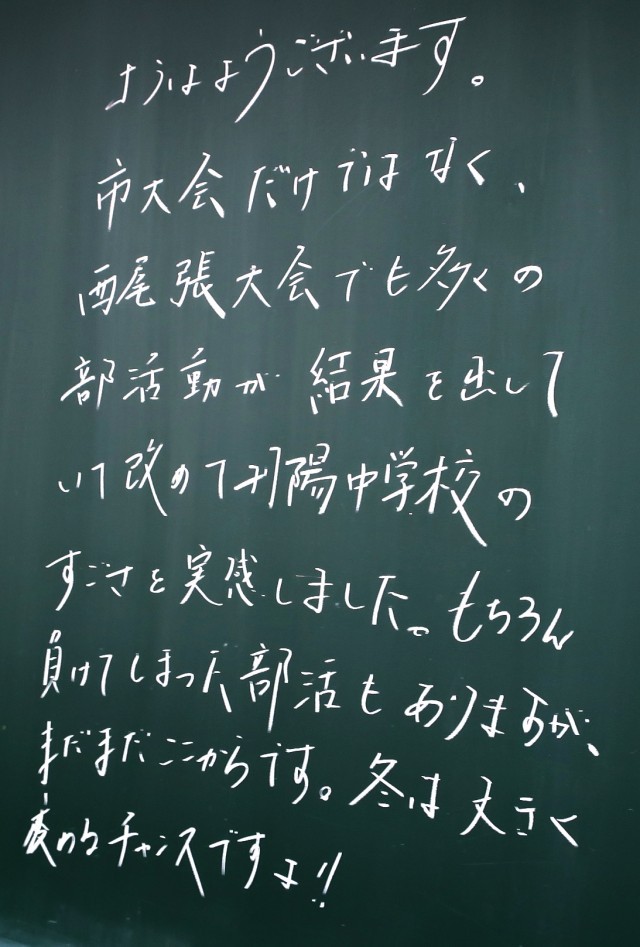 おはようございます。
市大会だけではなく、
西尾張大会でも多くの
部活動が結果を出して
いて改めて丹陽中学校の
すごさを実感しました。もちろん
負けてしまった部活もありますが、
まだまだここからです。冬は大きく
変わるチャンスですよ!!